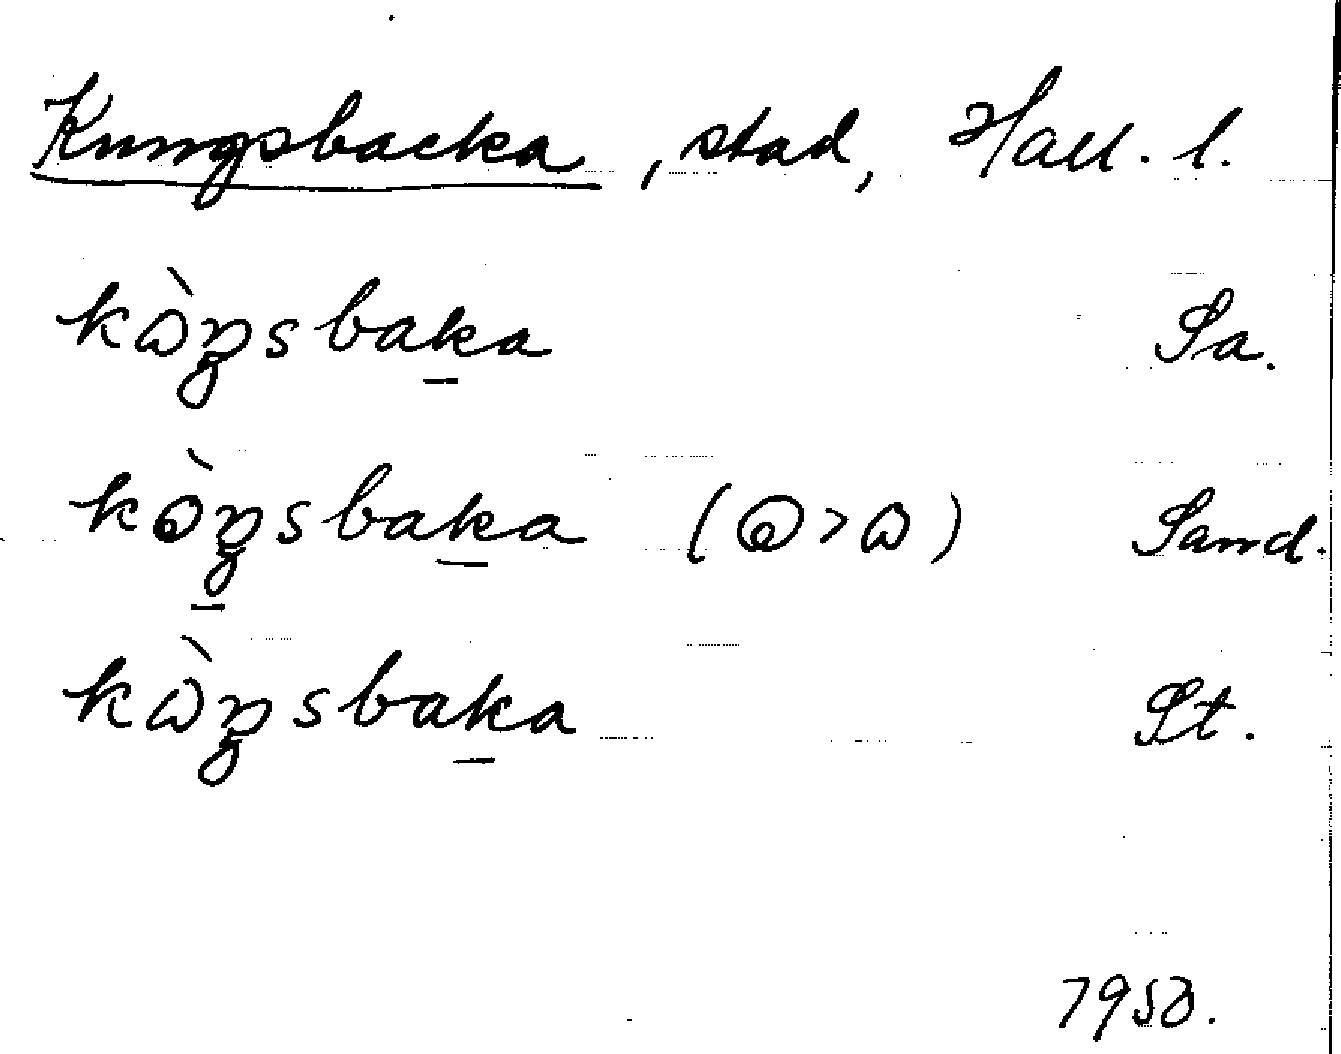 Kungsbacka, stad, Hall. l.
kòŋsbaka Sa.
kòŋsbaka Sand.
kòŋsbaka St.